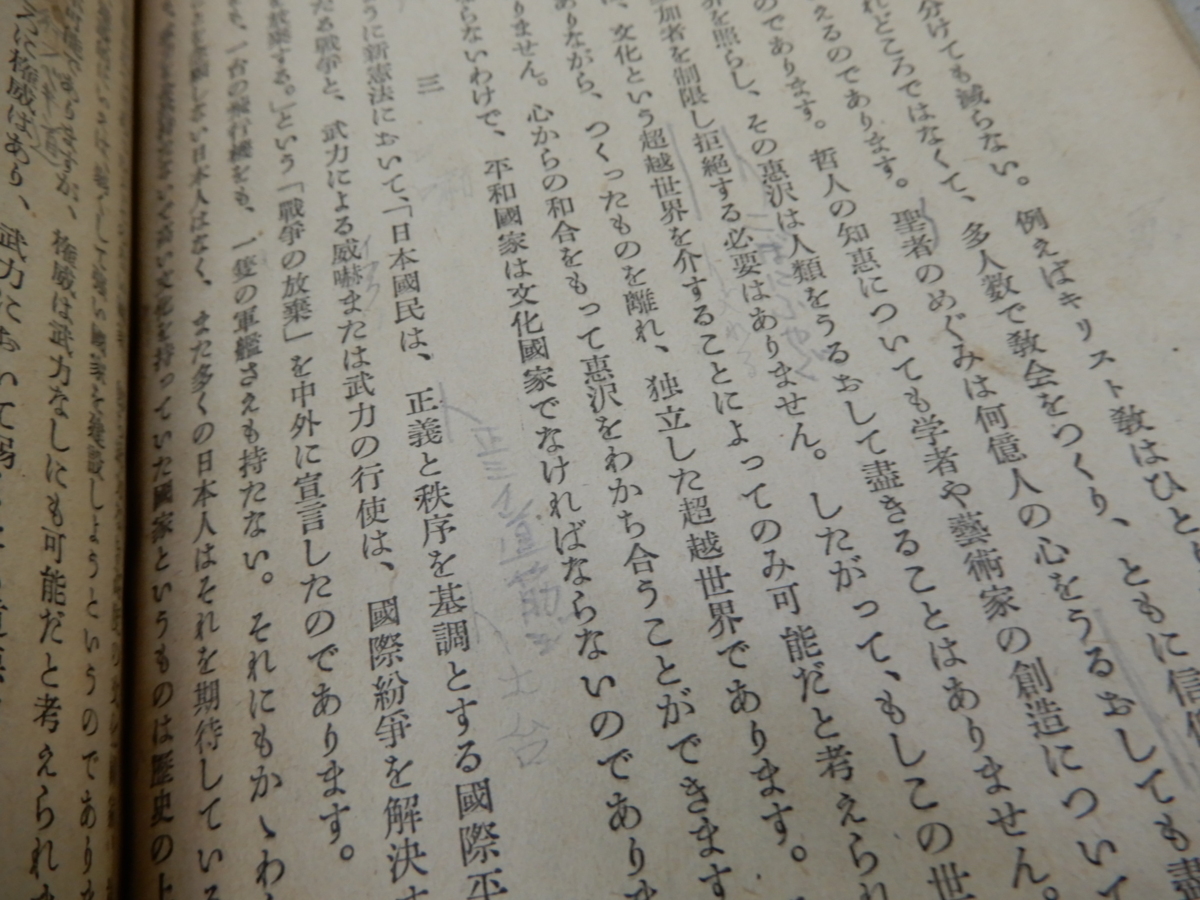 分けても減らない。例えばキリスト教はひと
れどころではなくて、多人数で教会をつくり、ともに信仰
えるのであります。聖者のめぐみは何億人の心をうるおしても盡
のであります。哲人の知恵についても学者や藝術家の創造について
界を照らし、その惠沢は人類をうるおして盡きることはありません。
加者を制限し拒絶する必要はありません。したがって、もしこの世
、文化という超越世界を介することによってのみ可能だと考えられ
ありながら、つくったものを離れ、独立した超越世界であります。
ません。心からの和合をもって惠沢をわかち合うことができます
らないわけで、平和國家は文化國家でなければならないのであり
三
うに新憲法において、「日本國民は、正義と秩序を基調とする國際平
たる戰爭と、武力による威嚇または武力の行使は、國際紛爭を解決す
する。」という「戰爭の放棄」を中外に宣言したのであります。
も、一台の飛行機をも、一隻の軍艦さえも持たない。それにもかゝわ
い日本人はなく、また多くの日本人はそれを期待している
高い文化を持っていた國家というものは歴史の上
しようというのであり
ますが、権威は武力なしにも可能だと考えられ
に権威はあり、武力において
正三イ道筋
土台